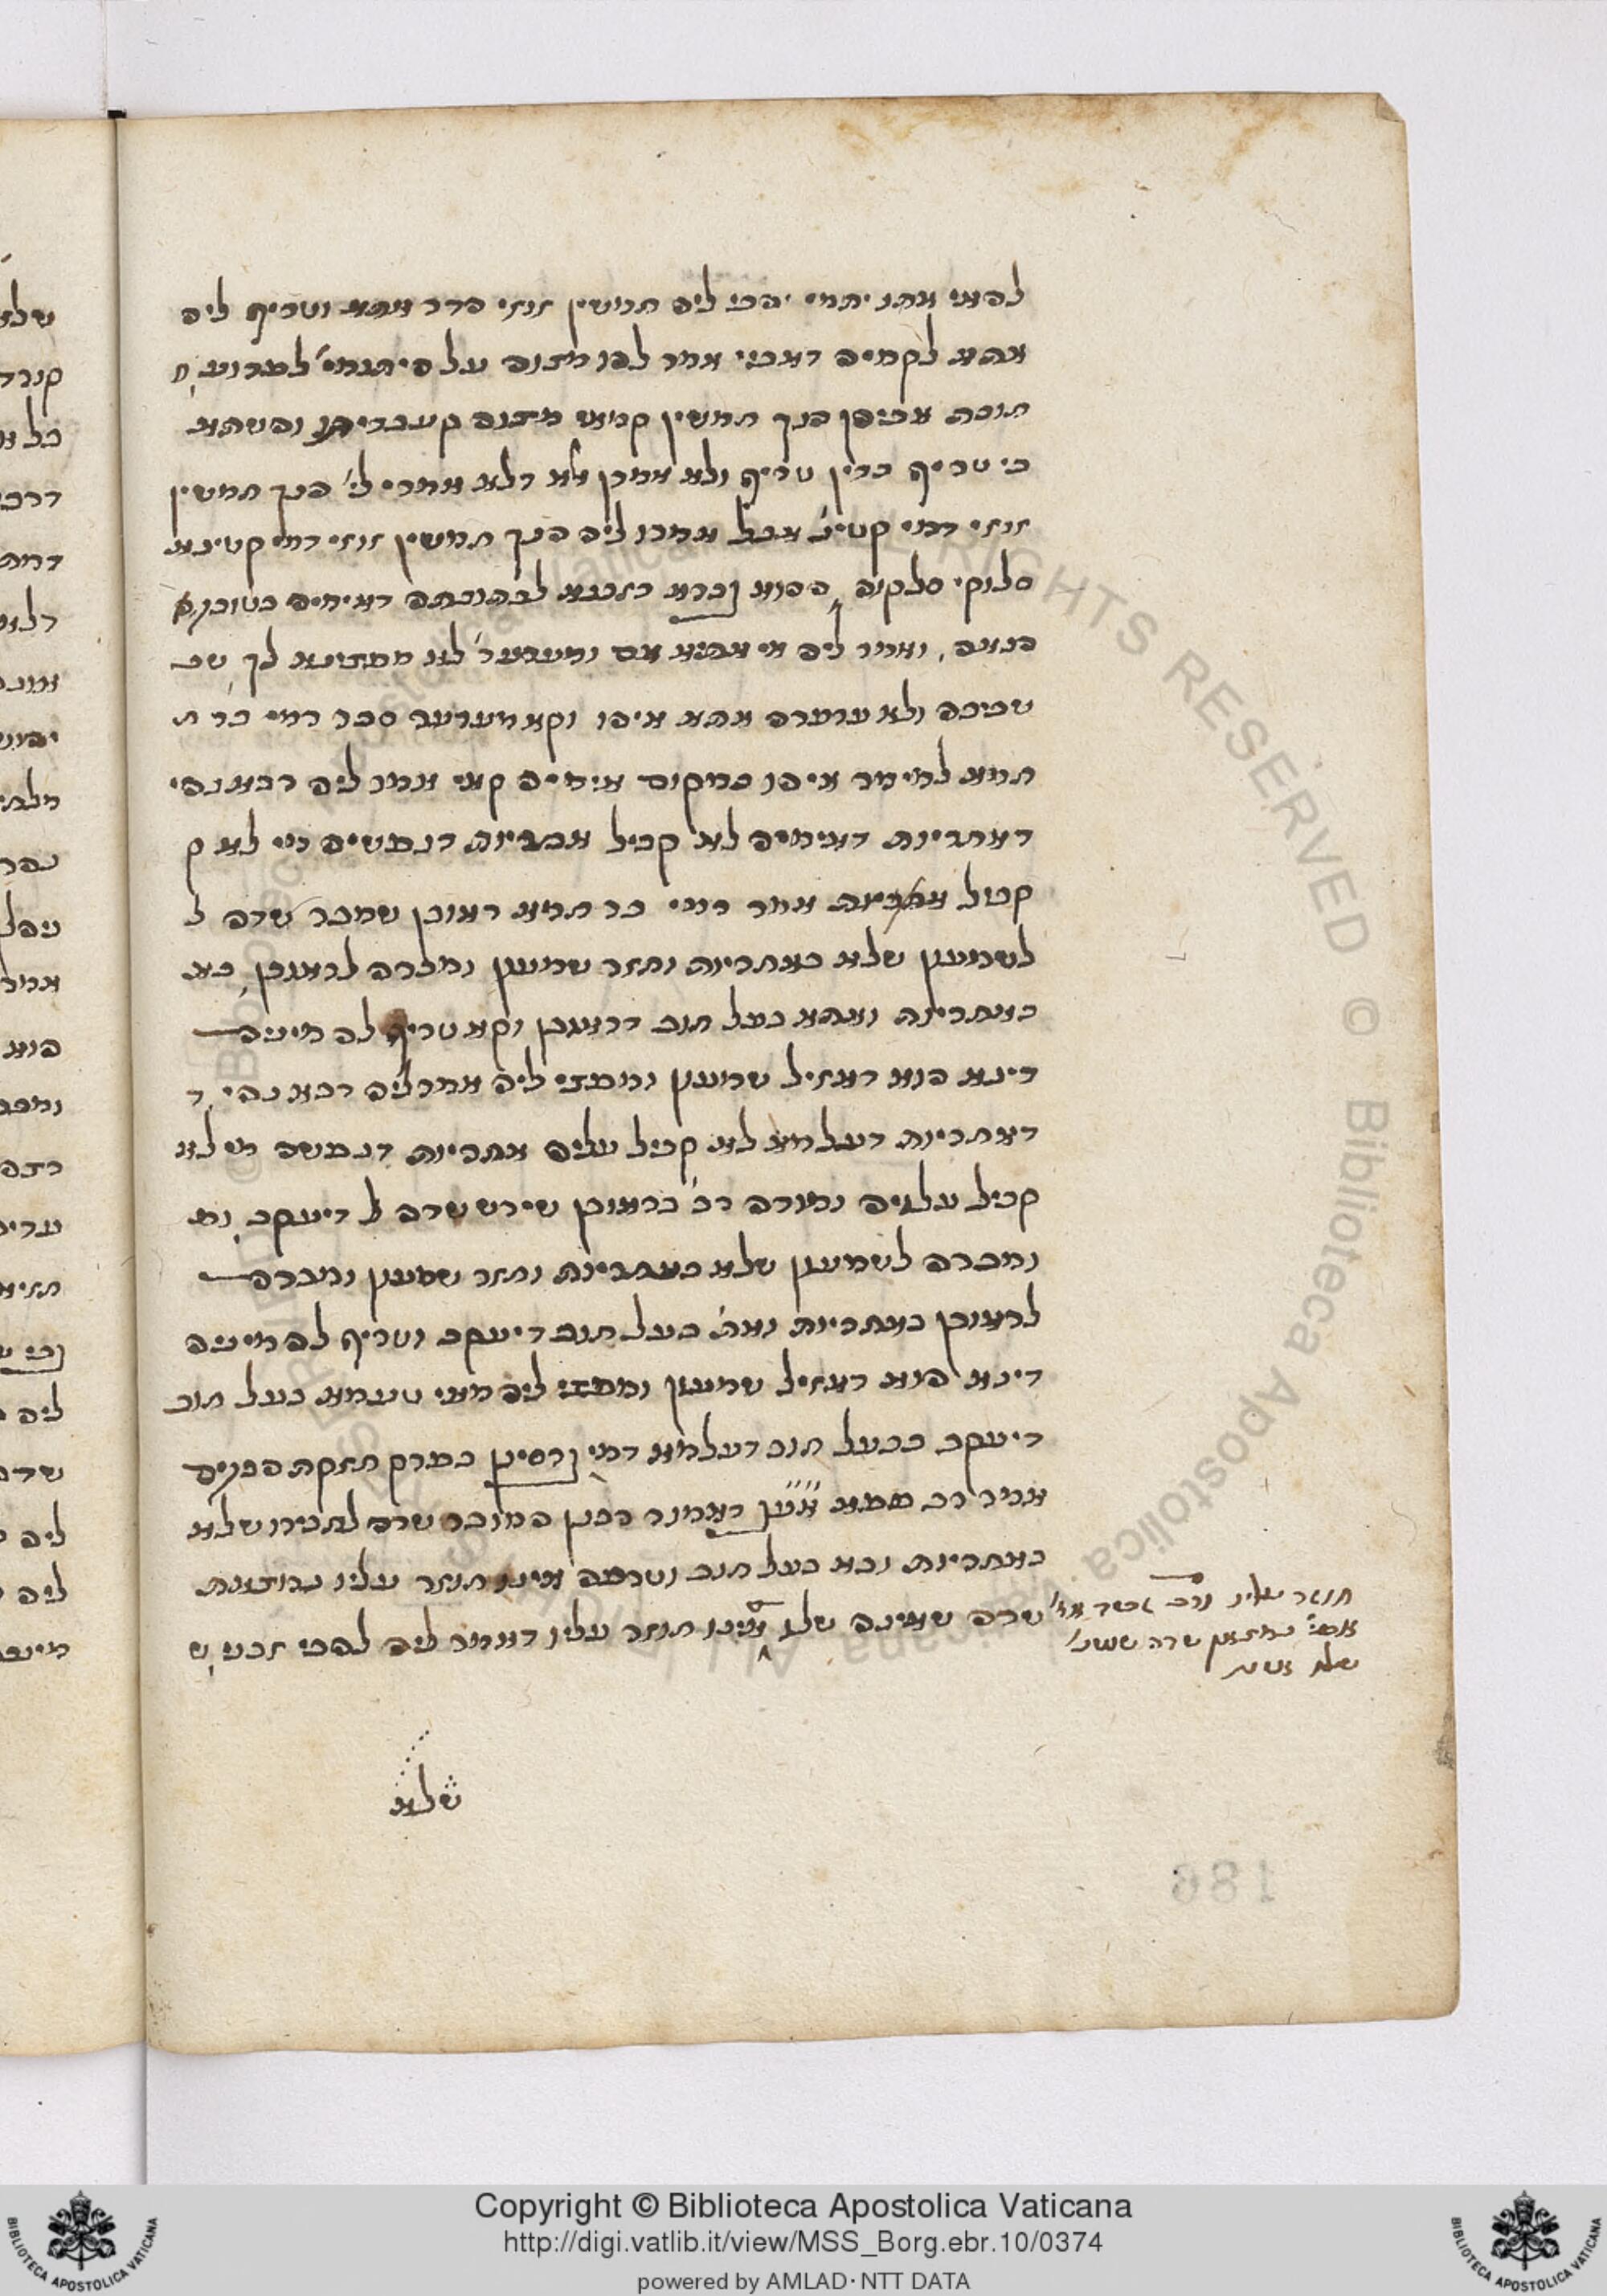 לההוא אתו יתמי יהבי ליה חמשין זוזי הדר אתא וטריף ליה
אתא לקמיה דאביי אמר להו מצוה על היתומי' לפרוע ח
חובת אביהן הנך חמשין קמאי מצוה קעבדיתו והשתא
כי טריף כדין טריף ולא אמרן אלא דלא אמרי לי' הנך חמשין
זוזי דמי קטינ' אבל אמרו ליה הנך חמשין זוזי דמי קטינא
סלוקי סלקוה ההוא גברא דזבנא לכתובתה דאימיה בטובת
הנאה ואמר ליה אי אתיא אם ומערער' לא מפצינא לך שכ
שכיבה ולא ערערה אתא איהו וקא מערער סבר רמי בר ח
חמא למימר איהו במקום אימיה קאי אמר ליה רבא נהי
דאחריות דאימיה לא קביל אחריות דנפשיה מי לא ק
קביל אחריות אמר רמי בר חמא ראובן שמכר שדה ל
לשמעון שלא באחריות וחזר שמעון ומכרה לראובן בא
באחריות ואתא בעל חוב דראובן וקא טריף לה מיניה
דינא הוא דאזיל שמעון ומפצי ליה אמר ליה רבא נהי ד
דאחריות דעלמא לא קביל עליה אחריות דנפשה מי לא
קביל עלויה ומודה רב' בראובן שירש שדה ל דיעקב ומ
ומכרה לשמעון שלא באחריות וחזר שמעון ומכרה
לראובן באחריות ואת' בעל חוב דיעקב וטריף לה מיניה
דינא הוא דאזיל שמעון ומפצי ליה מאי טעמא בעל חוב
דיעקב כבעל חוב דעלמא דמי גרסינן בפרק חזקת הבתים
אמר רב פפא אע"ג דאמור רבנן המוכר שדה לחבירו שלא
באחריות ובא בעל חוב וטרפה אינו חוזר עליו נמצאת
שדה שאינה שלו אינו חוזר עליו דאמר ליה להכי זבנ' ש
חוזר עליו
שלא
שלא
186
Copyright © Biblioteca Apostolica Vaticana
http://digi.vatlib.it/view/MSS_Borg.ebr.10/0374
powered by AMLAD·NTT DATA